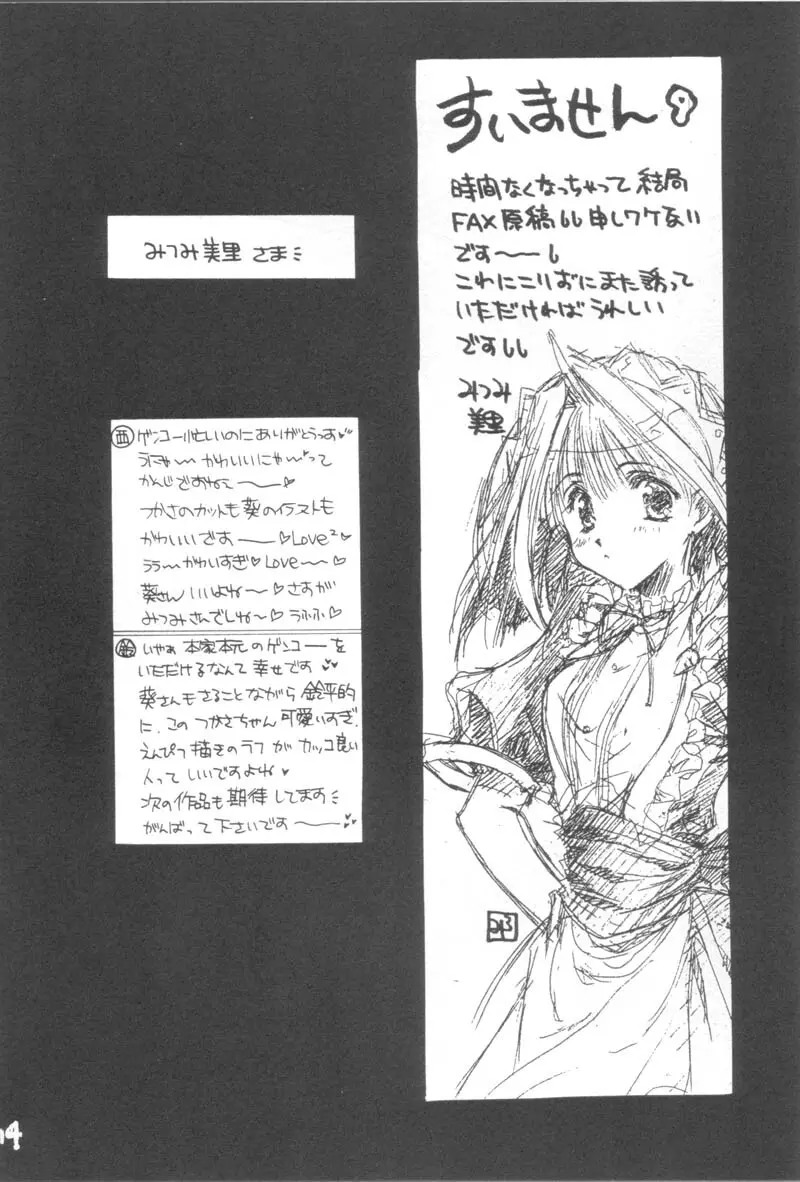 すいません
時間なくなっちゃって結局
FAX原稿しし申しワケない
です〜〜し
これにこりずにまた誘って
いただければうれしい
ですしし
みつみ
美里
みつみ美里 さま
西 ゲンコー忙しいのにありがとうっす♥
うにゃ〜〜かわいいにゃ〜って
かんじですねー〜♥
つかさのカットも葵のイラストも
かわいいです〜〜♡Love²
ララ〜かわいすぎ♥Love〜〜♡
葵さん いいよね〜♡さすが
みつみさんでしね〜♡うふふ♡
いやぁ 本家本元のゲンコーを
いただけるなんて幸せです♥
葵さんもさることながら 鈴平的
に、この つかさちゃん 可愛いすぎ。
えんぴつ描きのラフが カッコ良い
人って いいですよね♥
次の作品も期待してます
がんばって下さいです〜〜♥
14